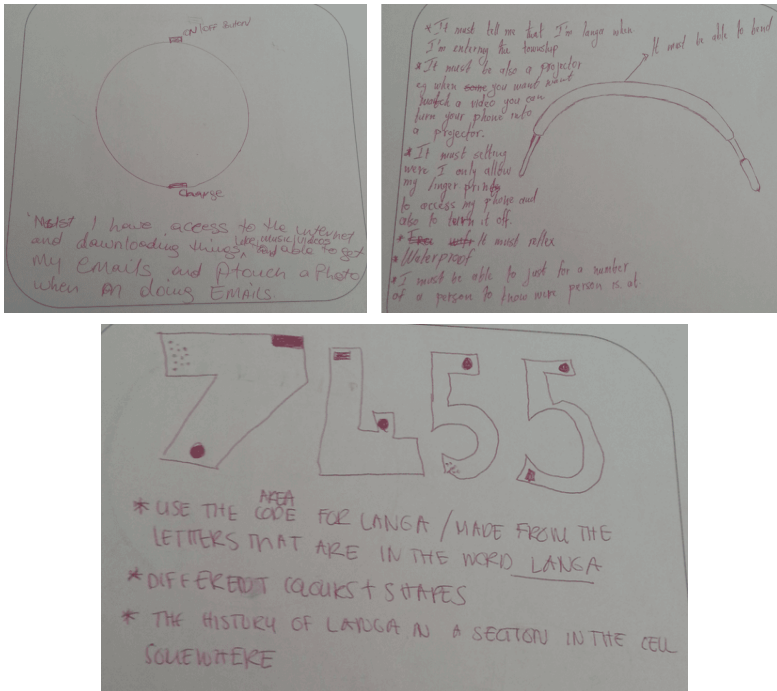 ON/OFF Button
Charge
Must I have access to the internet
and downloading things, like, music, videos
and able to get
my emails and Attouch a Photo
when Am doing EMAILS.
* It must tell me that I'm langa when
I'm entering the township
* It must be also a projector
eg when some you want want
watch a video you can
turn your phone into
a projector.
* It must setting
were I only allow
my finger prints
to access my phone and
also to turn it off.
* It must reflex
* Waterproof
* I must be able to just for a number
of a person to know were person is at
It must be able to bend
7455
* USE THE AREA CODE FOR LANGA / MADE FROM THE
LETTERS THAT ARE IN THE WORD LANGA
* DIFFERENT COLOURS + SHAPES
* THE HISTORY OF LANGA IN A SECTION IN THE CELL
SOMEWHERE